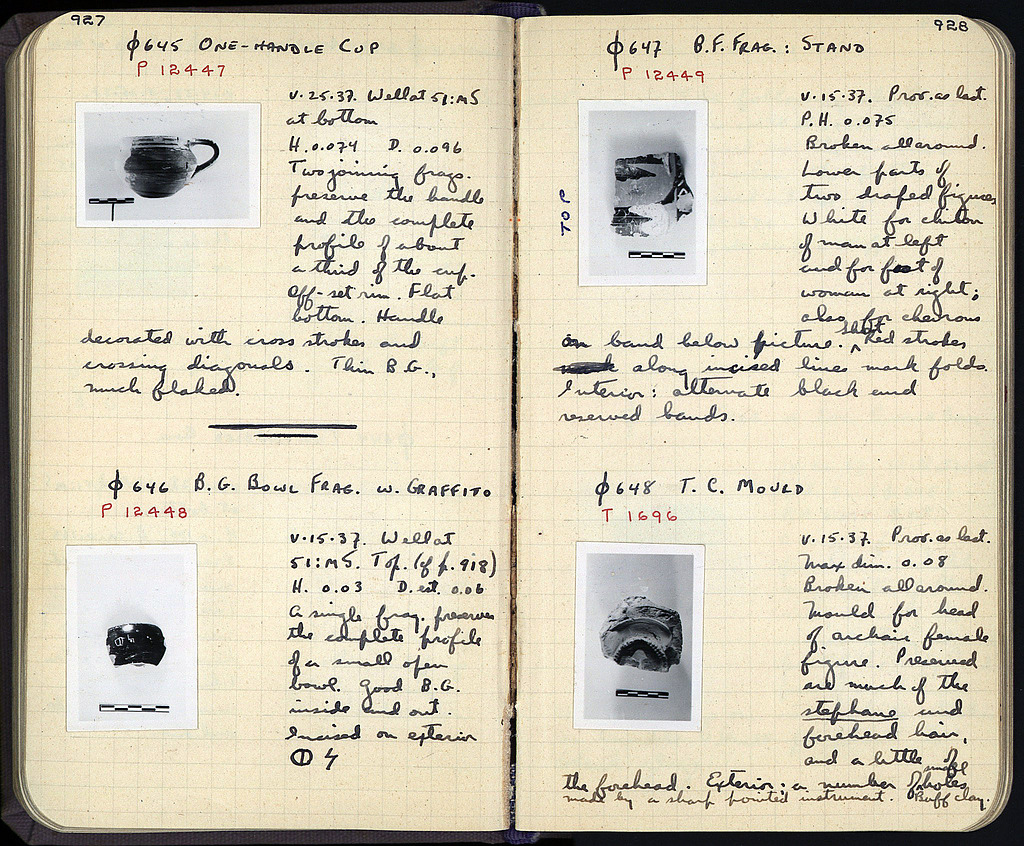 927
φ645 ONE-HANDLE CUP
P 12447
V·25·37. Well at 51:MS
at bottom
H. 0.074 D. 0.096
Two joining frags.
preserve the handle
and the complete
profile of about
a third of the cup.
Off-set rim. Flat
bottom. Handle
decorated with cross strokes and
crossing diagonals. Thin B.G.,
much flaked.
φ646 B.G. BOWL FRAG. W. GRAFFITO
P 12448
V·15·37. Well at
51:MS. Top. (cf p. 918)
H. 0.03 D. est. 0.06
A single frag. preserves
the complete profile
of a small open
bowl. Good B.G.
inside and out.
Incised on exterior
928
φ647 B.F. FRAG.: STAND
P 12449
TOP
V·15·37. Prov. as last.
P.H. 0.075
Broken all around.
Lower parts of
two draped figures
White for chiton
of man at left
and for foot of
woman at right;
also for chevrons
on band below picture. Short Red strokes
along incised lines mark folds.
Interior: alternate black and
reserved bands.
φ648 T.C. MOULD
T 1696
V·15·37. Prov. as last.
Max dim. 0.08
Broken all around.
Mould for head
of archaic female
figure. Preserved
are much of the
stephane and
forehead hair,
and a little of
the forehead. Exterior: a number of small holes
made by a sharp pointed instrument. Buff clay.